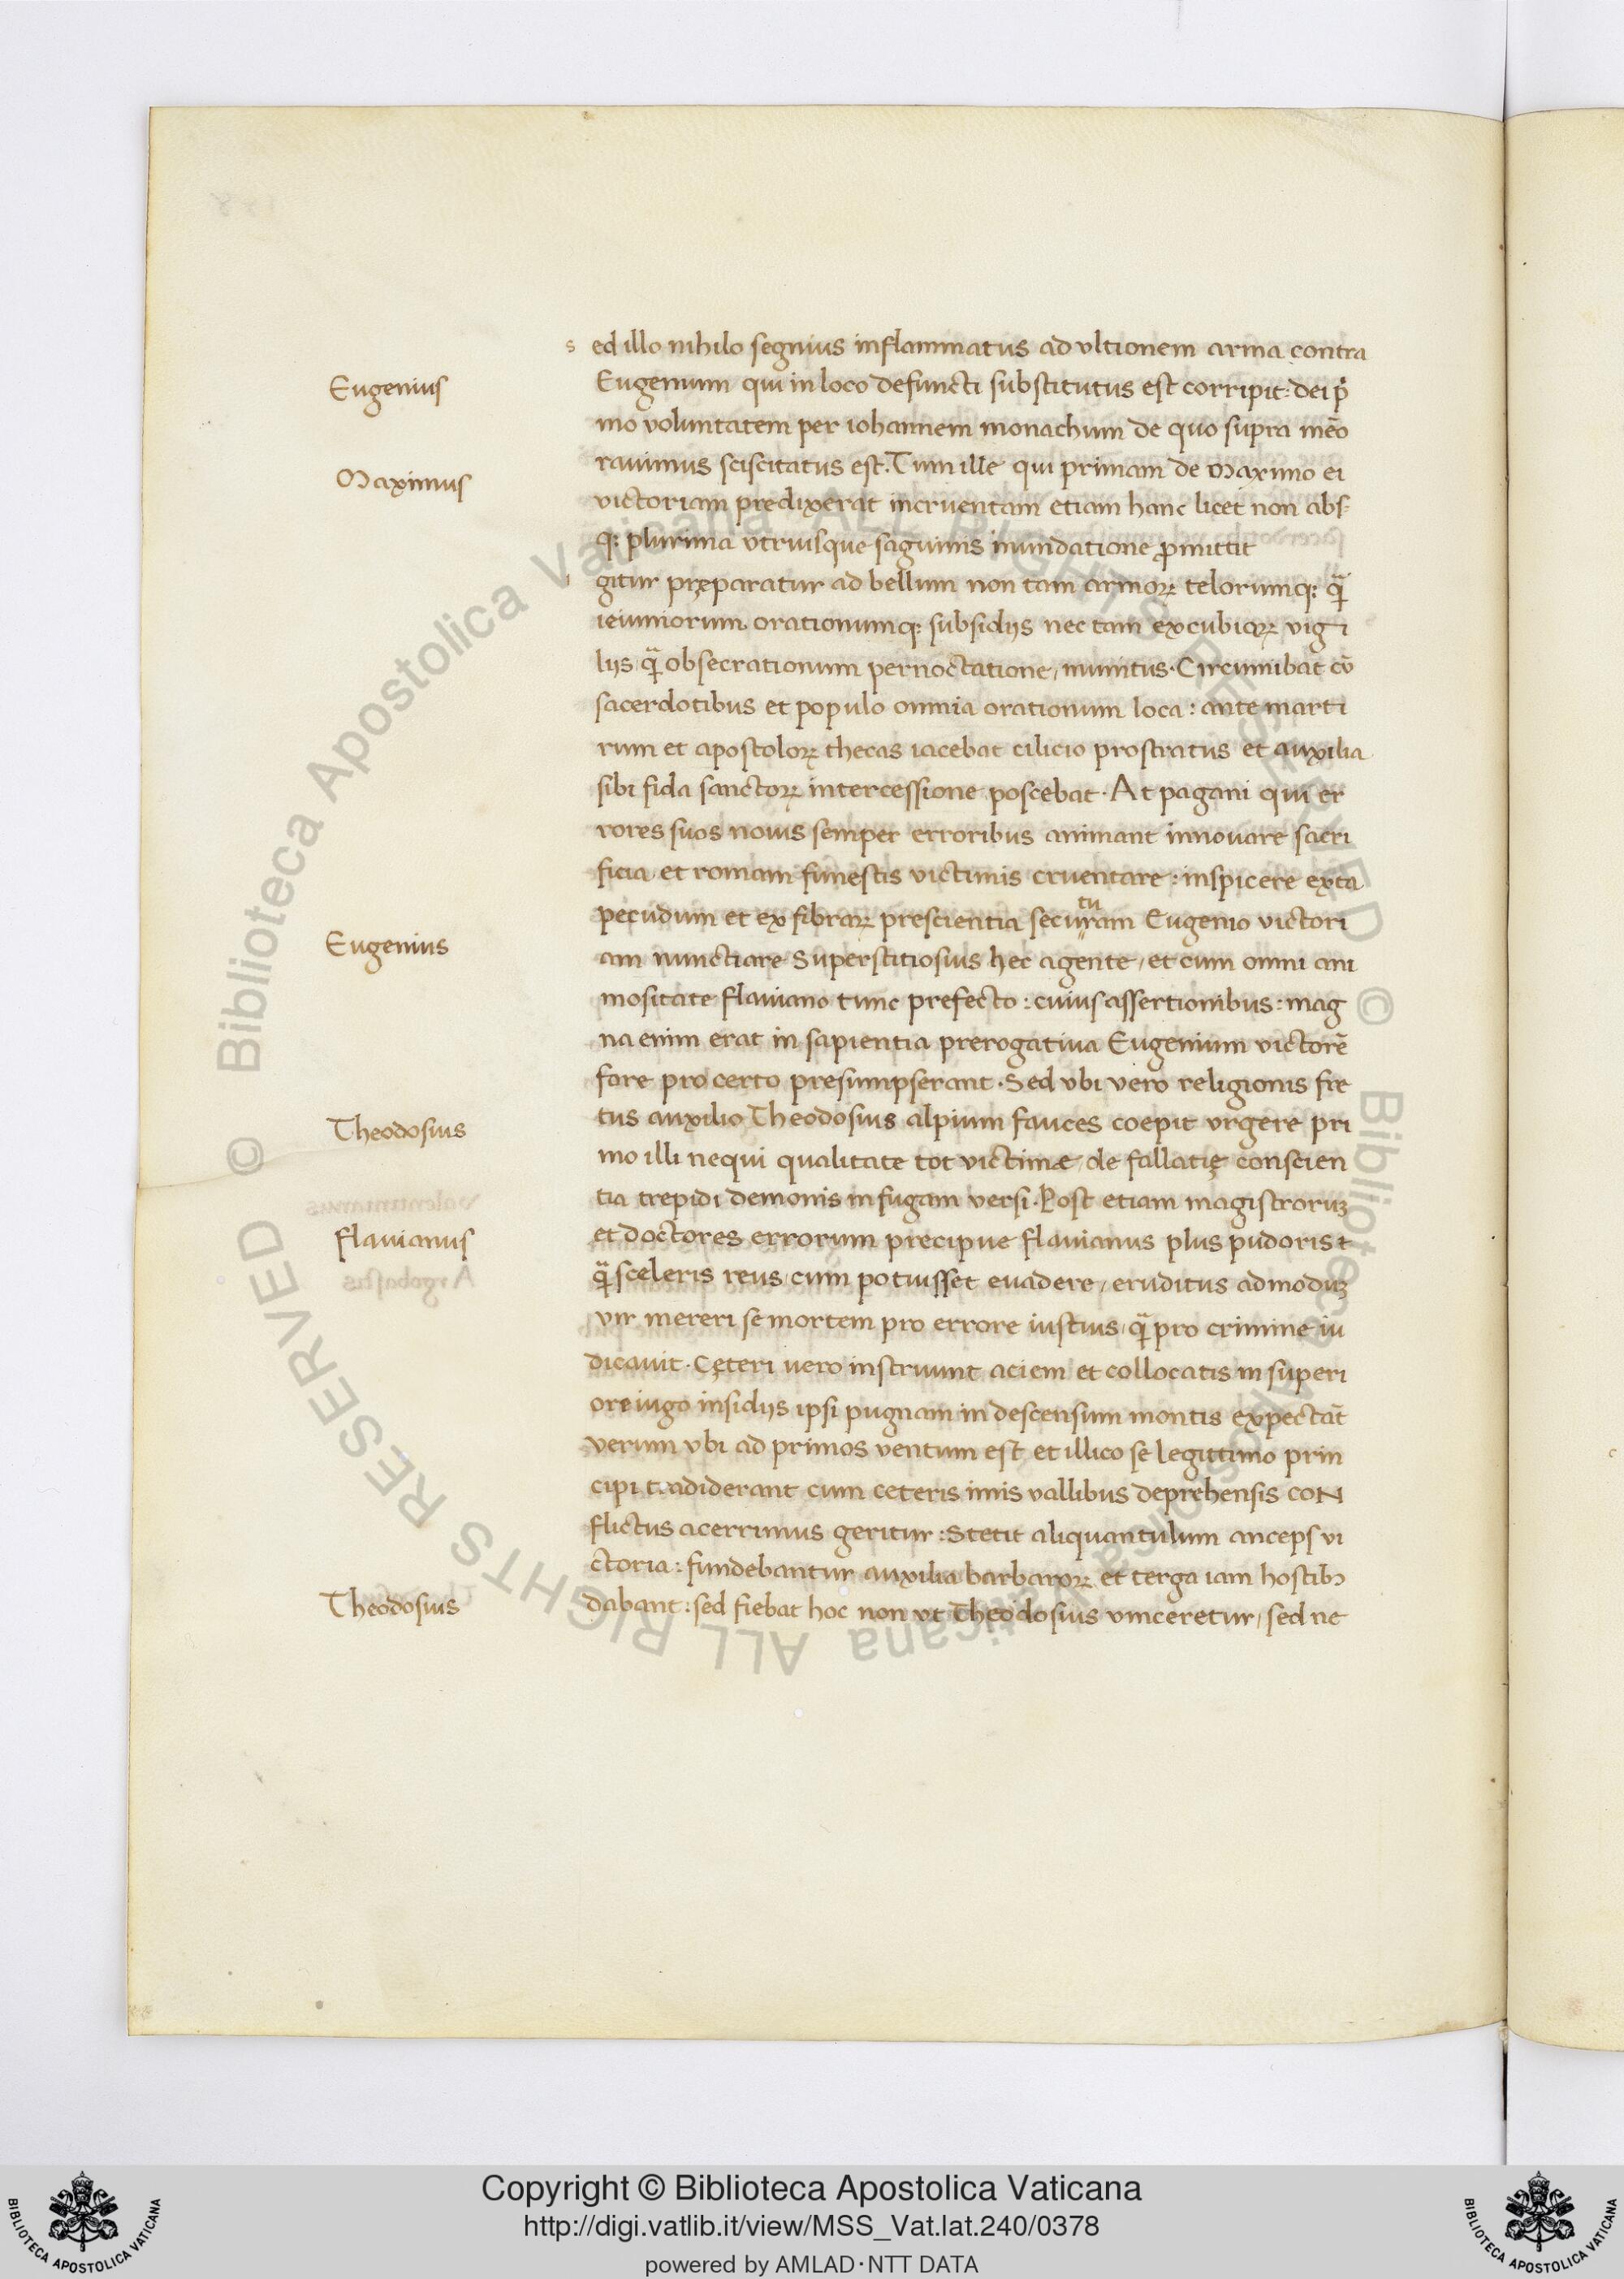 s ed illo nihilo segnius inflammatus ad vltionem arma contra
Eugenius
Eugenium qui in loco defuncti substitutus est corripit: dei p̃
mo voluntatem per iohannem monachum de quo supra mẽo
rauimus sciscitatus est. Tum ille qui primam de Maximo ei
Maximus
victoriam predixerat incruentam etiam hanc licet non abs
q; plurima vtriusque saguinis inundatione ꝓmittit
i gitur pręparatur ad bellum non tam armoꝝ telorumq; q̃
ieiuniorum orationumq; subsidijs nec tam excubiaꝝ vigi
lijs q̃ obsecrationum pernoctatione, munitus. Circumibat cũ
sacerdotibus et populo omnia orationum loca: ante marti
rum et apostoloꝝ thecas iacebat cilicio prostratus et auxilia
sibi fida sanctoꝝ intercessione poscebat. At pagani qui er
rores suos nouis semper erroribus animant innouare sacri
ficia et romam funestis victimis cruentare: inspicere exta
pecudum et ex fibraꝝ prescientia securam Eugenio victori
tu
Eugenius
am nunctiare Superstitiosius hec agente, et cum omni ani
mositate flauiano tunc prefecto: cuius assertionibus: mag
na enim erat in sapientia prerogatiua Eugenium victorẽ
fore pro certo presumpserant. Sed vbi vero religionis fre
tus auxilio Theodosius alpium fauces coepit vrgere pri
Theodosius
mo illi nequi qualitate tot victimæ, de fallatię conscien
tia trepidi demonis in fugam versi. Post etiam magistroruꝫ
et doctores errorum precipue flauianus plus pudoris
flauianus
q̃ sceleris reus, cum potuisset euadere, eruditus admoduꝫ
vir mereri se mortem pro errore iustius, q̃ pro crimine iu
dicauit. Cęteri uero instruunt aciem et collocatis in superi
ore iugo insidijs ipsi pugnam in descensum montis expectãt
verum vbi ad primos ventum est et illico se legittimo prin
cipi tradiderant cum ceteris imis vallibus deprehensis coN
flictus acerrimus geritur: Stetit aliquantulum anceps vi
ctoria: fundebantur auxilia barbaroꝝ et terga iam hostibꝫ
dabant: sed fiebat hoc non vt Theodosius vinceretur, sed ne
Theodosius
© Biblioteca Apostolica Vaticana ALL RIGHTS RESERVED © Biblioteca Apostolica Vaticana ALL RIGHTS RESERVED
Copyright © Biblioteca Apostolica Vaticana
http://digi.vatlib.it/view/MSS_Vat.lat.240/0378
powered by AMLAD·NTT DATA
BIBLIOTECA APOSTOLICA VATICANA
BIBLIOTECA APOSTOLICA VATICANA